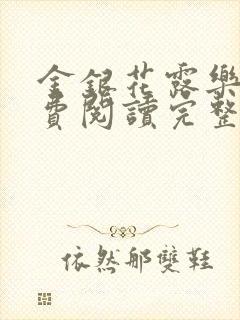 金銀花露樂
費閱讀完整
依然那雙鞋